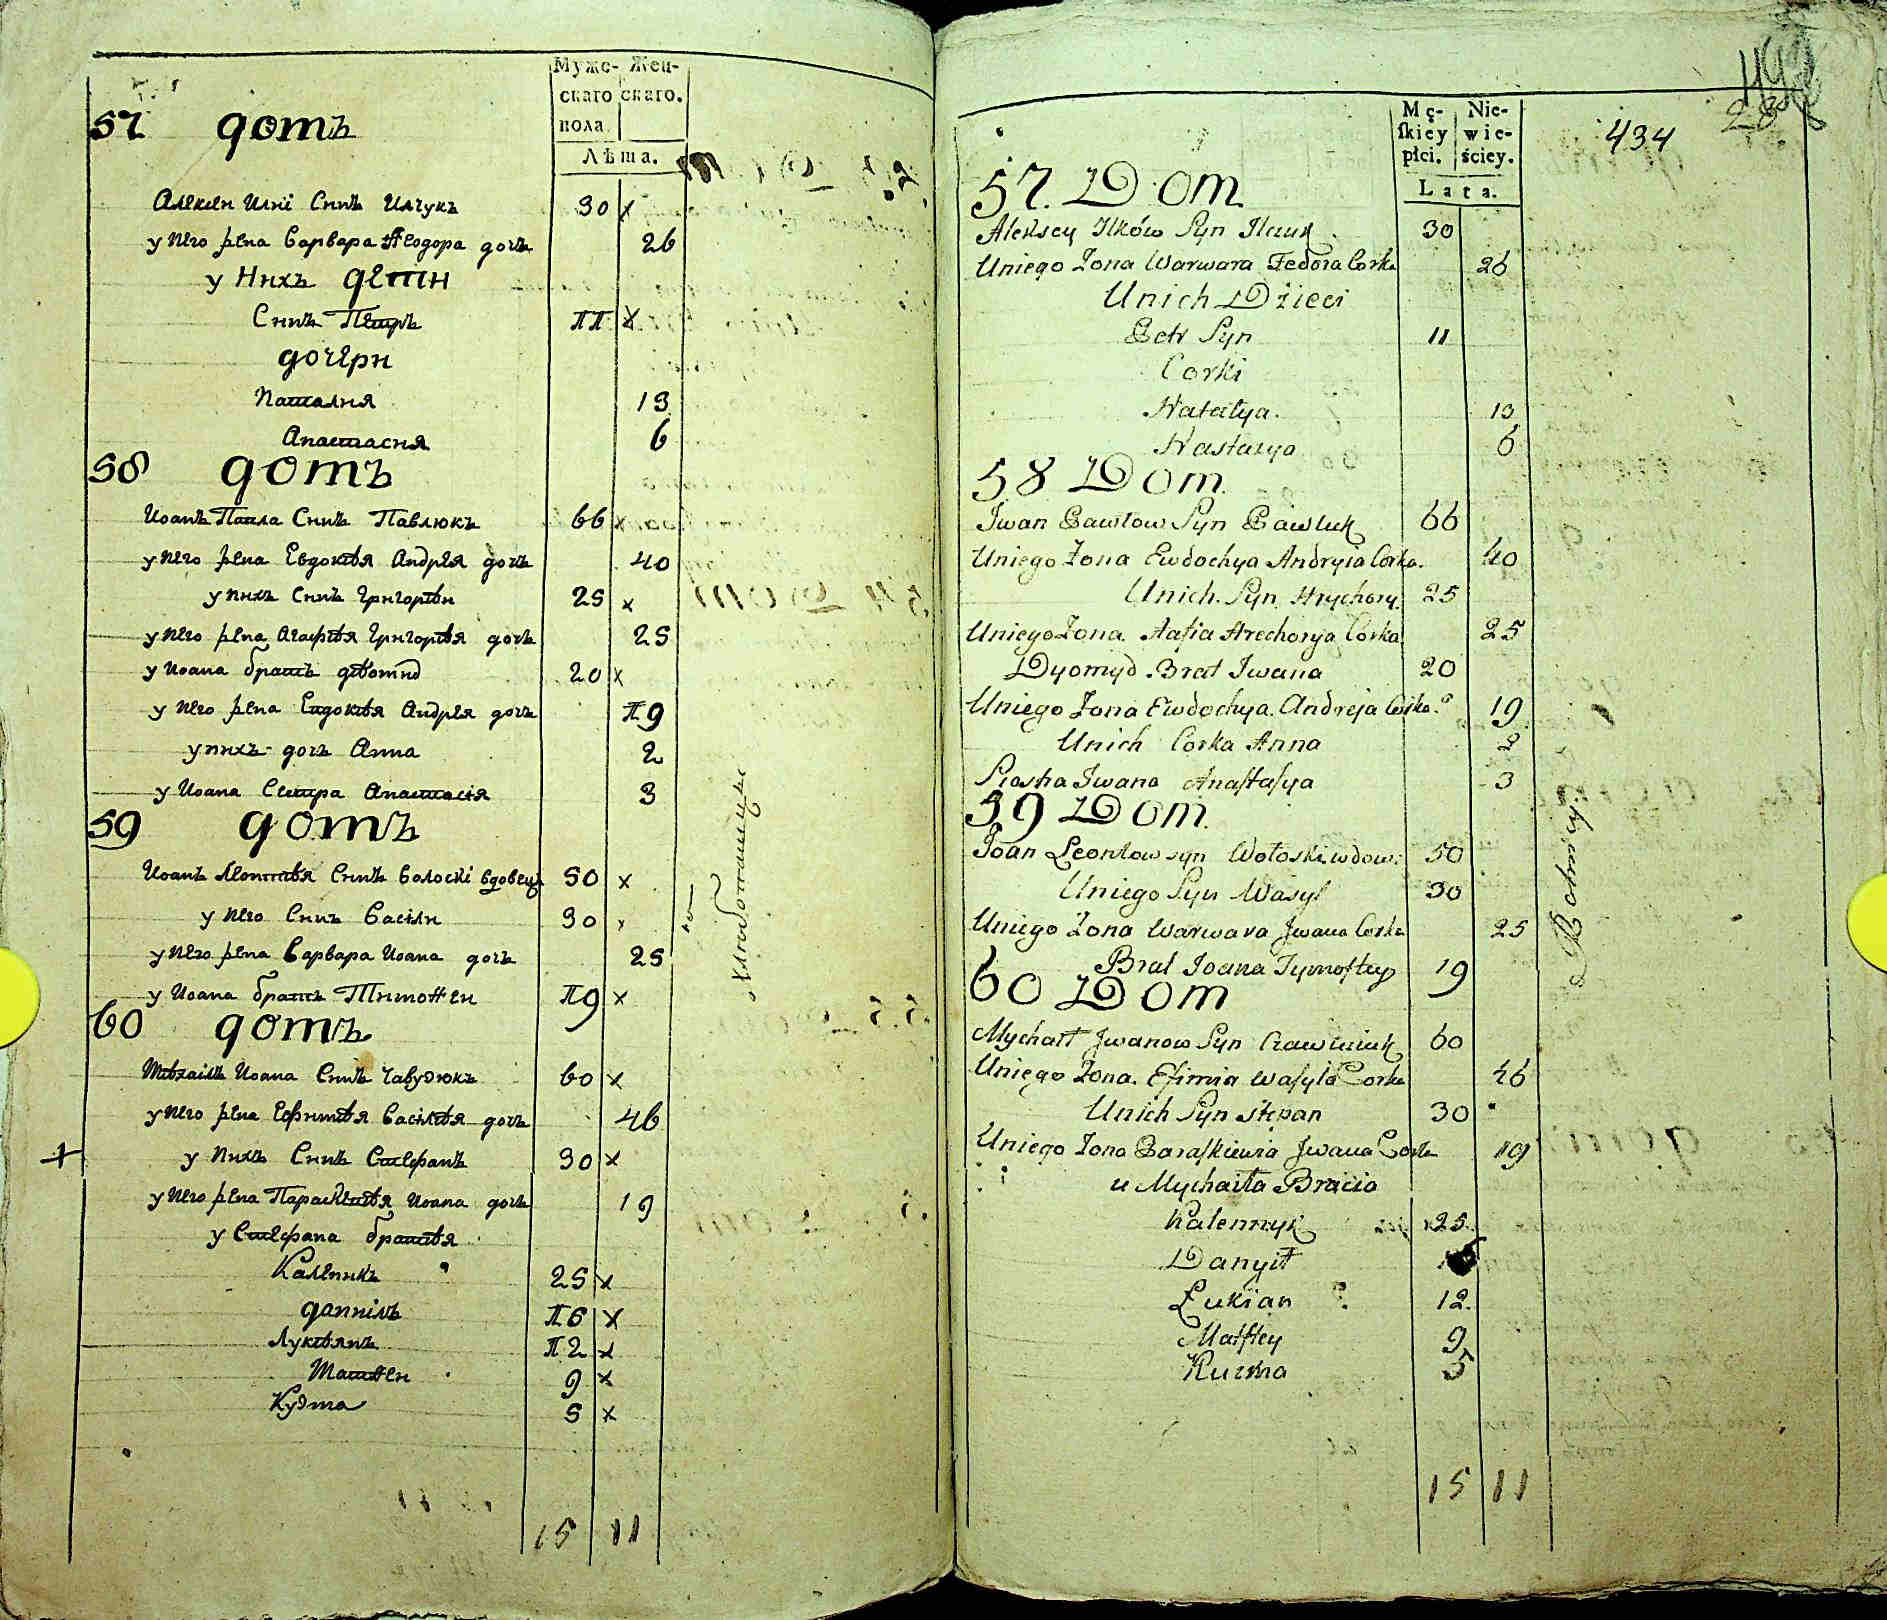 Мужс- Жен-
скаго скаго.
пола
Лѣта.
57 домъ
Алексеи Илкі Синъ Илчукъ 30 x
у Него жена Варвара Ѳеодора дочъ 26
у Нихъ дети
Синъ Петръ 11 x
дочери
Наталия 13
Анастасия 6
58 домъ
Иоанъ Павла Синъ Павлюкъ 66 x
у Него жена Евдокия Андрея дочъ 40
у нихъ Синъ Григории 25 x
у Него жена Агафия Григория дочъ 25
у Иоана братъ диомид 20 x
у Него жена Евдокия Андрея дочъ 19
у нихъ дочъ Анна 2
у Иоана Сестра Анастасія 3
59 домъ
Иоанъ Леонтия Синъ Волоскі вдовецъ 50 x
у Него Синъ Васіли 30 x
у Него жена Варвара Иоана дочъ 25
у Иоана братъ Тимоѳеи 19 x
60 домъ
Михаилъ Иоана Синъ 60 x
у Него жена Ефимия Василия дочъ 46
у Нихъ Синъ Стефанъ 30 x
у Него жена Параскевия Иоана дочъ 19
у Стефана братия
Каленикъ 25 x
даниилъ 16 x
Лукиянъ 12 x
Матѳеи 9 x
Кузма 5 x
15 11
Mę- Nie-
ſkiey wie-
płci. ściey.
Lata.
434
28
57. Dom.
Aleksey Ilków Syn Ilczuk 30
Uniego Zona Warwara Fedora Corka 26
Unich Dzieci
Petr Syn 11
Corki
Natalya. 13
Nastasya 6
58 Dom.
Jwan Pawłow Syn Pawluk 66
Uniego Zona Ewdochya Andryia Corka. 40
Unich. Syn Hrychory. 25
Uniego Zona. Aafia Hrechorya Corka 25
Dyomyd. Brat Jwana 20
Uniego Zona Ewdochya. Andreja Corka. 19
Unich Corka Anna 2
Siostra Jwana Anaſtaſya 3
59 Dom.
Joan Leontow syn Wołoski wdow: 50
Uniego Syn Wasyl 30
Uniego Zona Warwara Jwana Corka 25
Brat Joana Tymoftey 19
60 Dom
Mychaił Jwanow Syn 60
Uniego Zona. Efimia Waſyla Corka 46
Unich Syn Stepan 30
Uniego Zona Paraſkiewia Jwana Corka 19
u Mychaiła Bracia
Kalennyk 25.
Danyił
Łukian 12.
Matftey 9
Kuzma 5
15 11